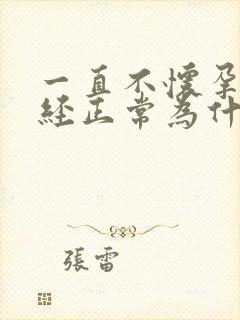 一直不懷孕
經正常為什
張雷